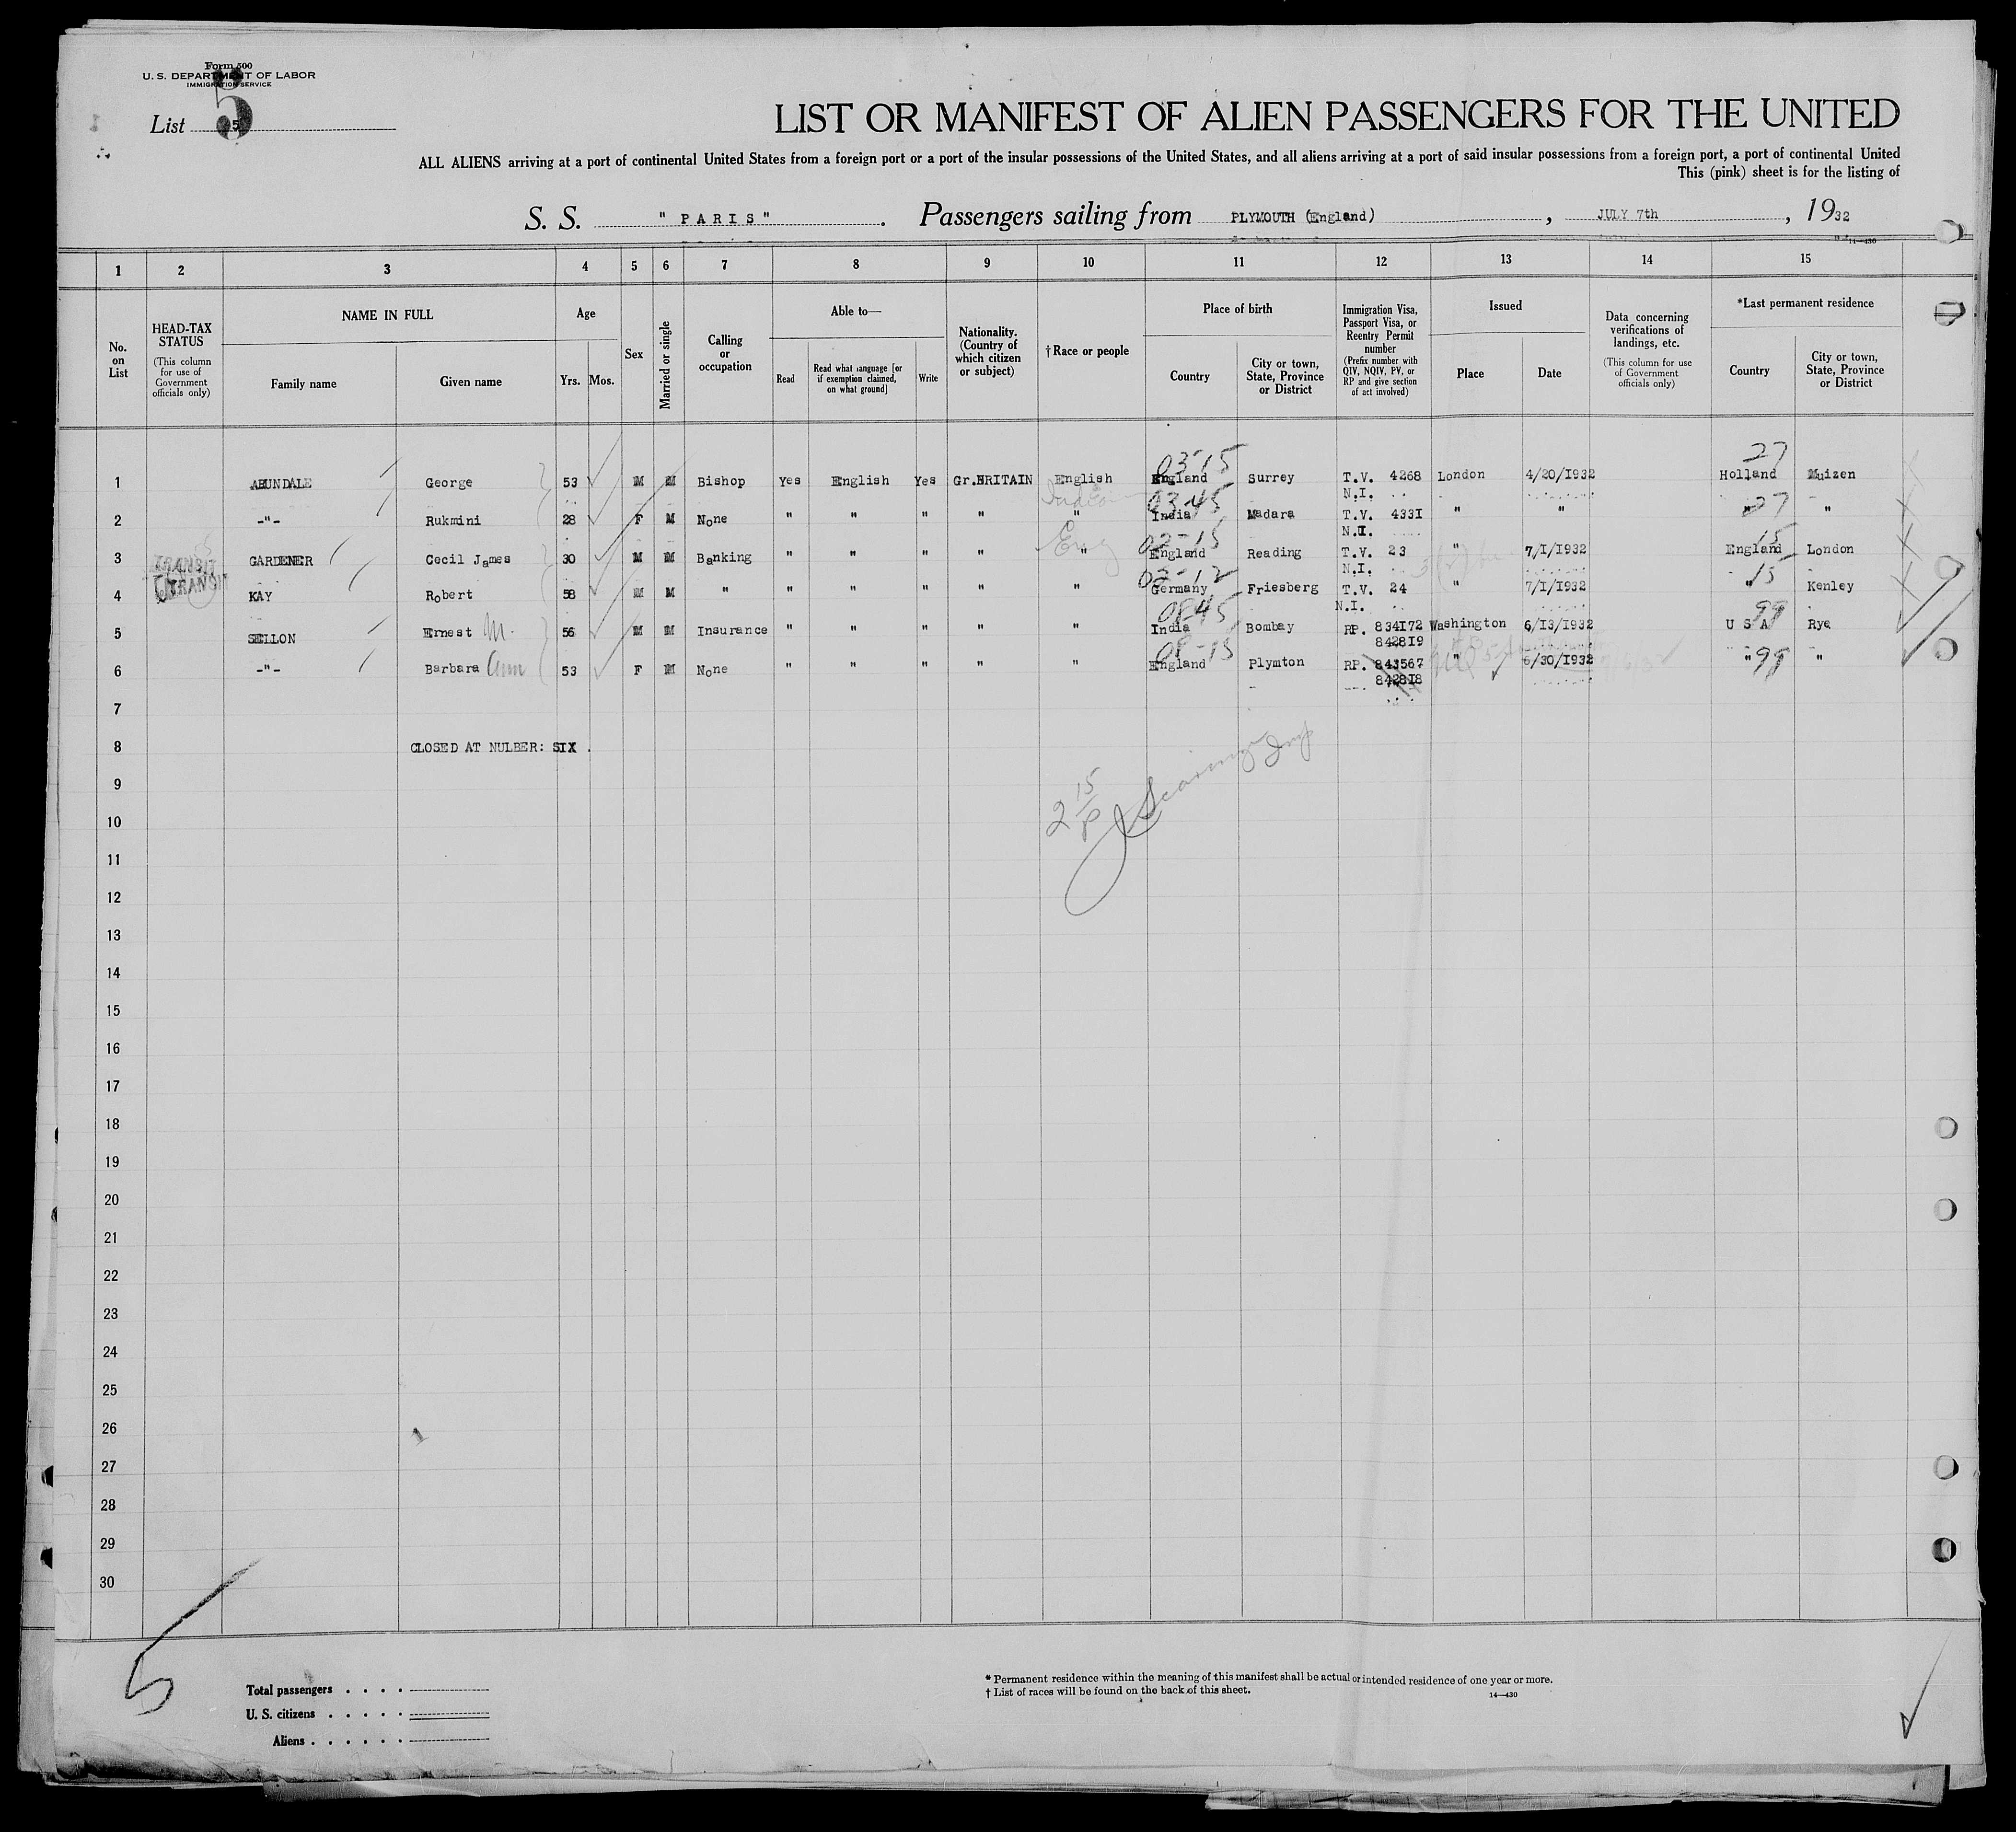 Form 500
U. S. DEPARTMENT OF LABOR
IMMIGRATION SERVICE
List 5
5
LIST OR MANIFEST OF ALIEN PASSENGERS FOR THE UNITED
ALL ALIENS arriving at a port of continental United States from a foreign port or a port of the insular possessions of the United States, and all aliens arriving at a port of said insular possessions from a foreign port, a port of continental United
This (pink) sheet is for the listing of
S. S. " PARIS " . Passengers sailing from PLYMOUTH (England) , JULY 7th , 1932
14—430
1 2 3 4 5 6 7 8 9 10 11 12 13 14 15
No. on List
HEAD-TAX STATUS (This column for use of Government officials only)
NAME IN FULL
Family name
Given name
Age
Yrs. Mos.
Sex
Married or single
Calling or occupation
Able to—
Read
Read what language [or if exemption claimed, on what ground]
Write
Nationality. (Country of which citizen or subject)
†Race or people
Place of birth
Country
City or town, State, Province or District
Immigration Visa, Passport Visa, or Reentry Permit number (Prefix number with QIV, NQIV, PV, or RP and give section of act involved)
Issued
Place
Date
Data concerning verifications of landings, etc. (This column for use of Government officials only)
*Last permanent residence
Country
City or town, State, Province or District
03-15 27
1 ARUNDALE George 53 M M Bishop Yes English Yes Gr.BRITAIN English England Surrey T.V. 4268 London 4/20/1932 Holland Huizen
N.I.
Indian 03-45 27
2 -"- Rukmini 28 F M None " " " " " India Madura T.V. 4331 " " " "
N.I.
Eng 02-15 15
3 TRANSIT GARDENER Cecil James 30 M M Banking " " " " " England Reading T.V. 23 " 7/1/1932 England London
N.I.
02-12 15
4 TRANSIT KAY Robert 58 M M " " " " " " Germany Friesberg T.V. 24 " 7/1/1932 " Kenley
N.I.
08-45 99
5 SELLON Ernest M. 56 M M Insurance " " " " " India Bombay RP. 834172 Washington 6/13/1932 U S A Rye
842819
08-15 99
6 -"- Barbara Ann 53 F M None " " " " " England Plymton RP. 843567 " 6/30/1932 " "
842818
7
8 CLOSED AT NULBER: SIX .
9
10 2 15/P
11
12
13
14
15
16
17
18
19
20
21
22
23
24
25
26
27
28
29
30
5
Total passengers . . . .
U. S. citizens . . . . .
Aliens . . . . . .
* Permanent residence within the meaning of this manifest shall be actual or intended residence of one year or more.
† List of races will be found on the back of this sheet.
14—430